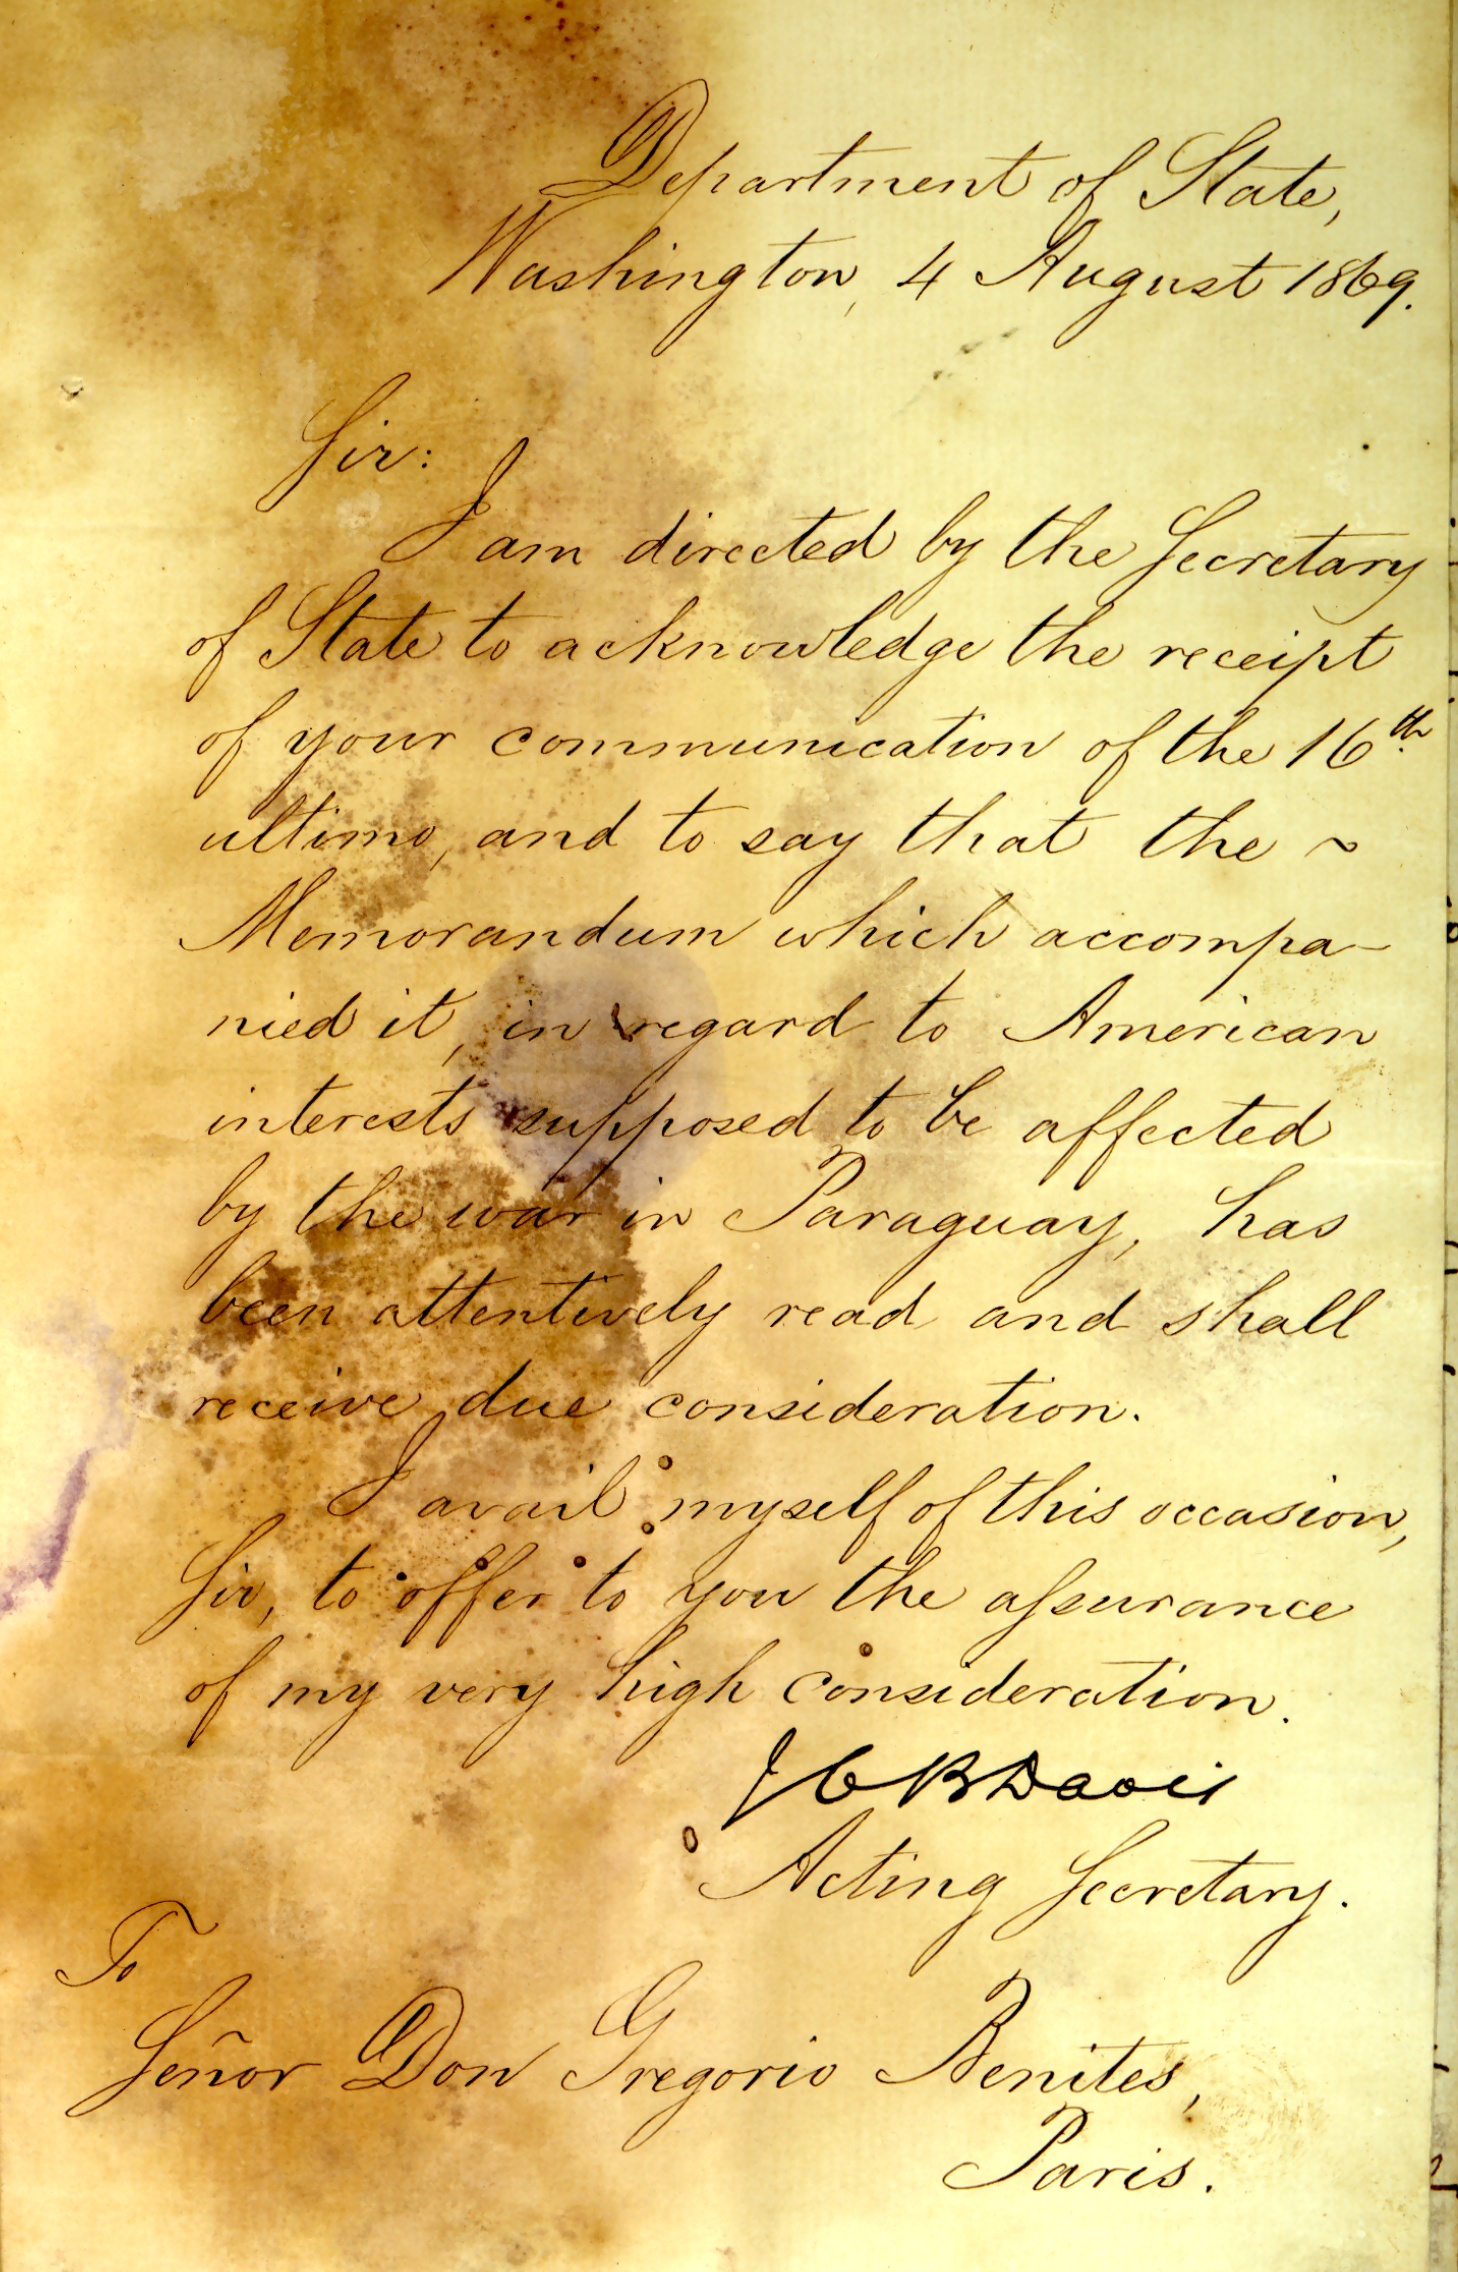 Department of State,
Washington, 4 August 1869.
Sir:
I am directed by the Secretary
of State to acknowledge the receipt
of your communication of the 16th
ultimo, and to say that the ~
Memorandum which accompa-
nied it, in regard to American
interests supposed to be affected
by the war in Paraguay, has
been attentively read and shall
receive due consideration.
I avail myself of this occasion,
Sir, to offer to you the aſsurance
of my very high consideration.
J C B Davis
Acting Secretary.
To
Señor Don Gregorio Benites,
Paris.